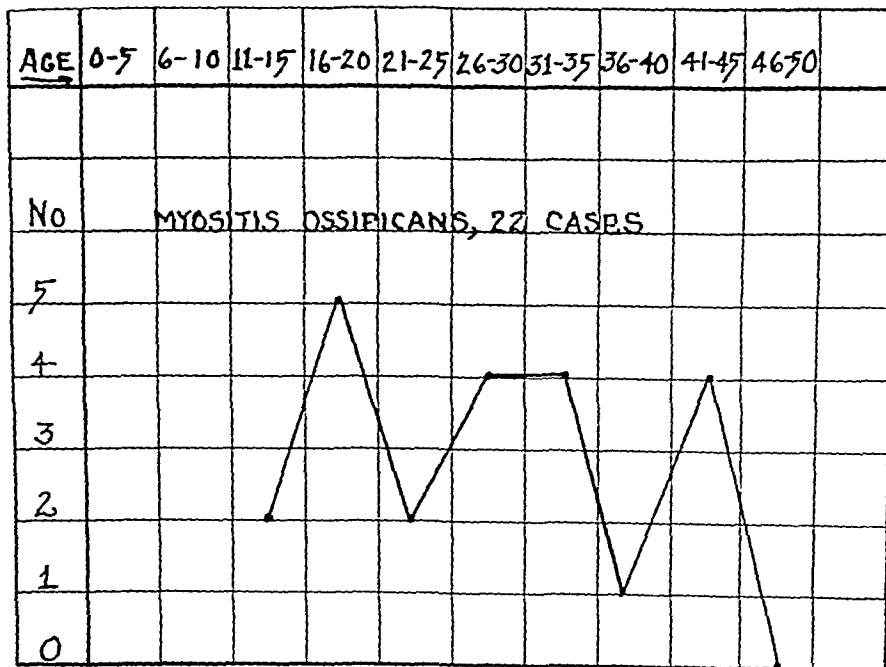 AGE 0-5 6-10 11-15 16-20 21-25 26-30 31-35 36-40 41-45 46-50
No MYOSITIS OSSIFICANS, 22 CASES
5
4
3
2
1
0